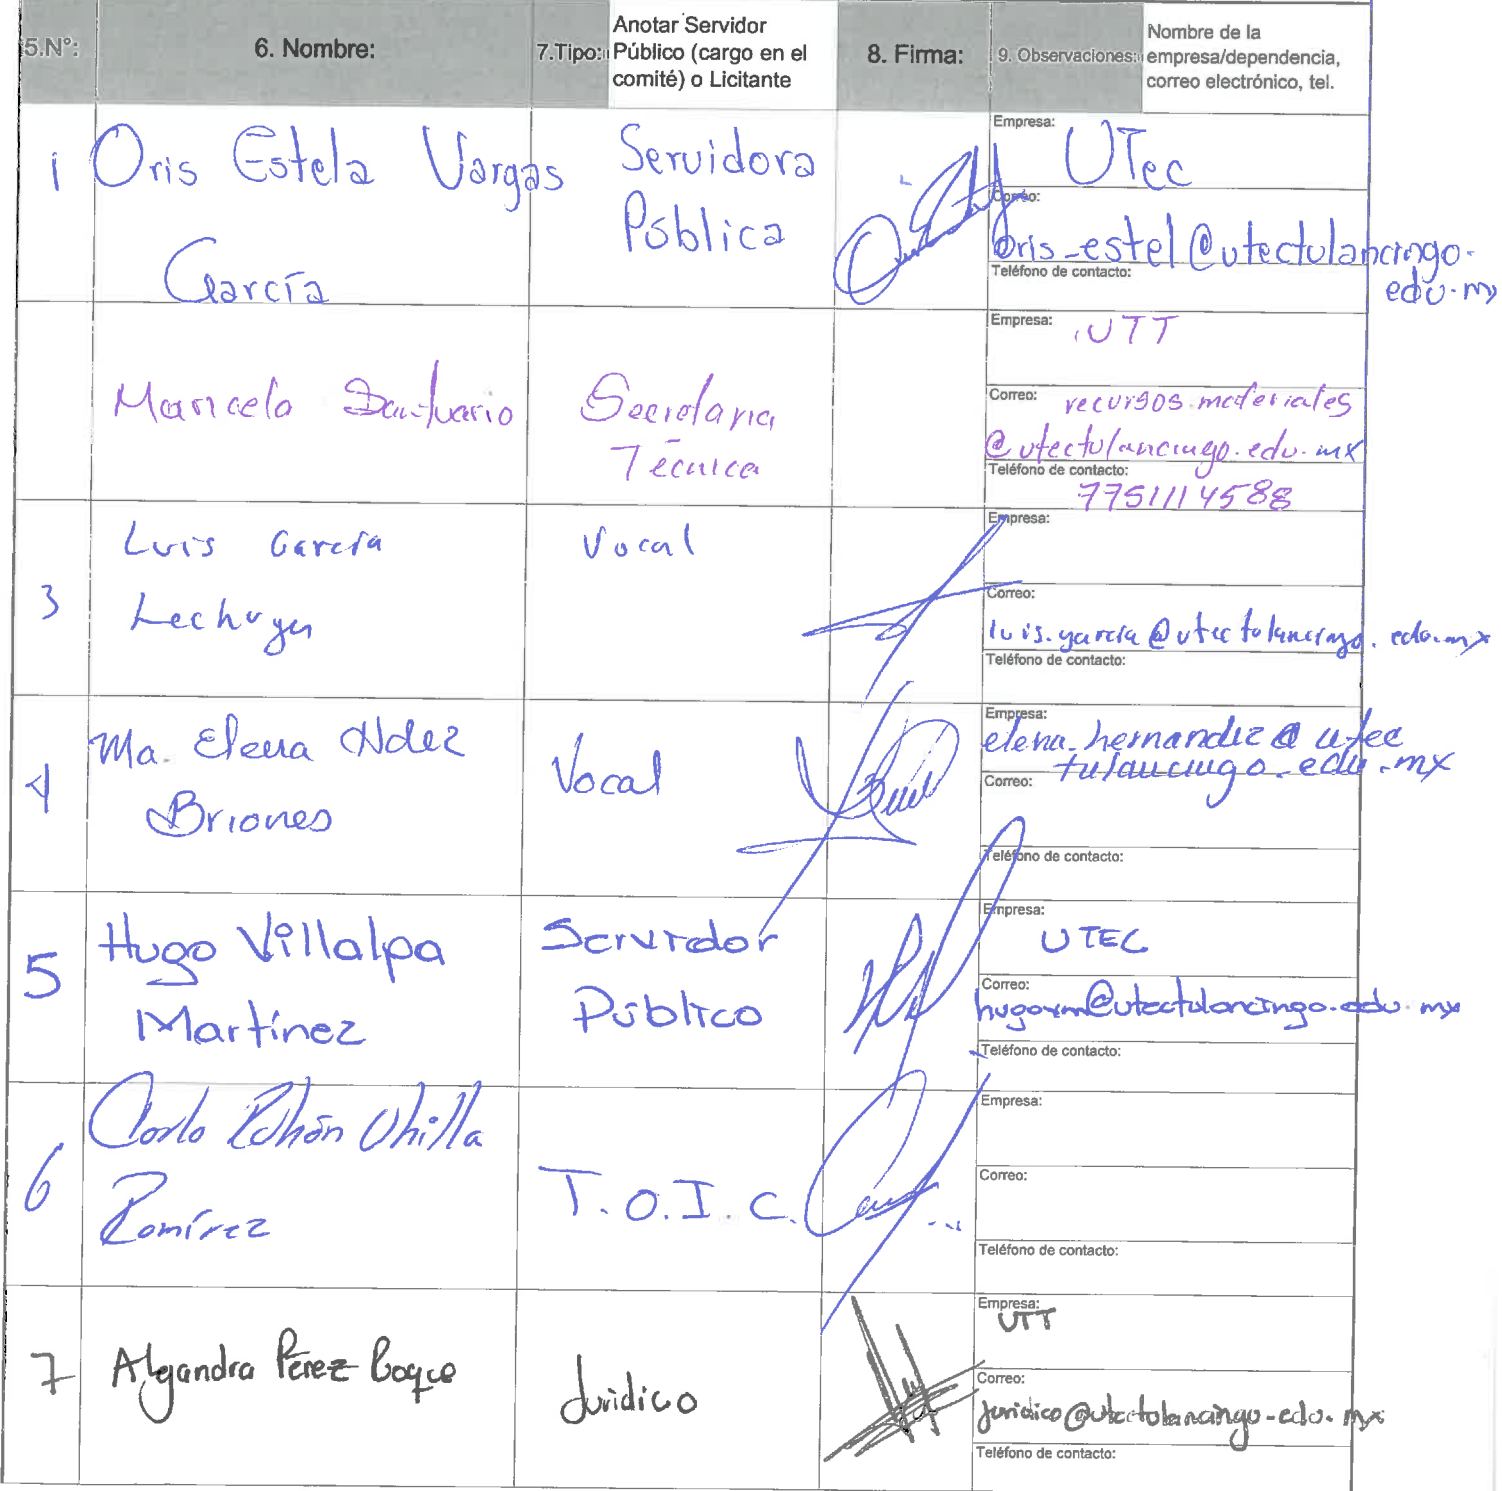 5.N°:
6. Nombre:
7.Tipo:
Anotar Servidor
Público (cargo en el
comité) o Licitante
8. Firma:
9. Observaciones:
Nombre de la
empresa/dependencia,
correo electrónico, tel.
1
Oris Estela Vargas
García
Servidora
Pública
Empresa:
UTec
Correo:
oris_estel@utectulancingo.
edu.mx
Teléfono de contacto:
Maricela Santuario
Secretaria
Técnica
Empresa:
UTT
Correo:
recursos.materiales
@utectulancingo.edu.mx
Teléfono de contacto:
7751114588
3
Luis García
Lechuga
Vocal
Empresa:
Correo:
luis.garcia@utectulancingo.edu.mx
Teléfono de contacto:
4
Ma. Elena Hdez
Briones
Vocal
Empresa:
elena.hernandez@utec
tulancingo.edu.mx
Correo:
Teléfono de contacto:
5
Hugo Villalpa
Martínez
Servidor
Público
Empresa:
UTEC
Correo:
hugovm@utectulancingo.edu.mx
Teléfono de contacto:
6
Ramírez
T.O.I.C.
Empresa:
Correo:
Teléfono de contacto:
7
Alejandra Pérez
Jurídico
Empresa:
UTT
Correo:
juridico@utectulancingo.edu.mx
Teléfono de contacto: